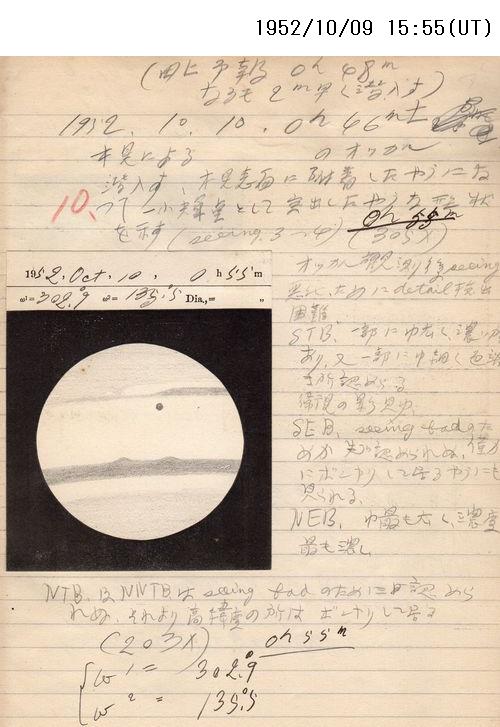 1952/10/09 15:55(UT)
(田上予報 0h 48m
なるも 2m早く潜入す)
1952. 10. 10. 0h 46m
木星による のオッカル
潜入す、木星表面に附着したやうにな
10. つて一小輝星として突出したやうな形状
を示す (seeing. 3〜4) (305X) 0h 55m
オッカル観測後seeing
悪化、ためにdetail検出
困難
1952. Oct. 10, 0h 55m
ω=302.°9 ω=135.°5 Dia.,= "
STB. 一部に巾広く濃い
あり、又一部に巾細く
を所認めらる
衛視の影見ゆ
SEB. seeing badのた
めか 認められぬ、僅か
にボンヤリして居るやうにも
見られる、
NEB. 巾最も太く濃度
最も濃し
NTB. 及 NNTBは seeing badのために 認めら
れぬ、それより高緯度の所は ボンヤリして居る
(203X) 0h 55m
ω1 = 302.°9
ω2 = 135.°5